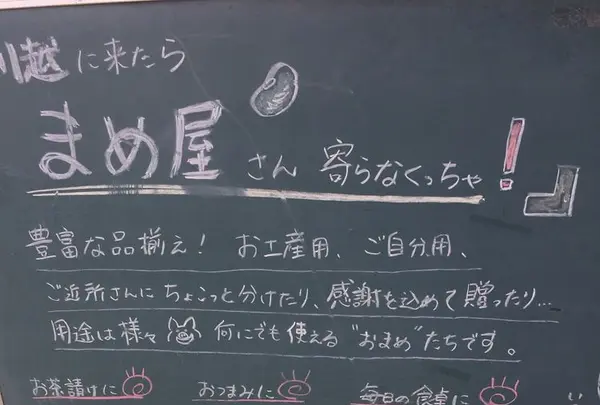 川越に来たら
まめ屋さん 寄らなくっちゃ!』
豊富な品揃え! お土産用、ご自分用、
ご近所さんにちょこっと分けたり、感謝を込めて贈ったり…
用途は様々 何にでも使える"おまめ"たちです。
お茶請けに おつまみに 毎日の食卓に い